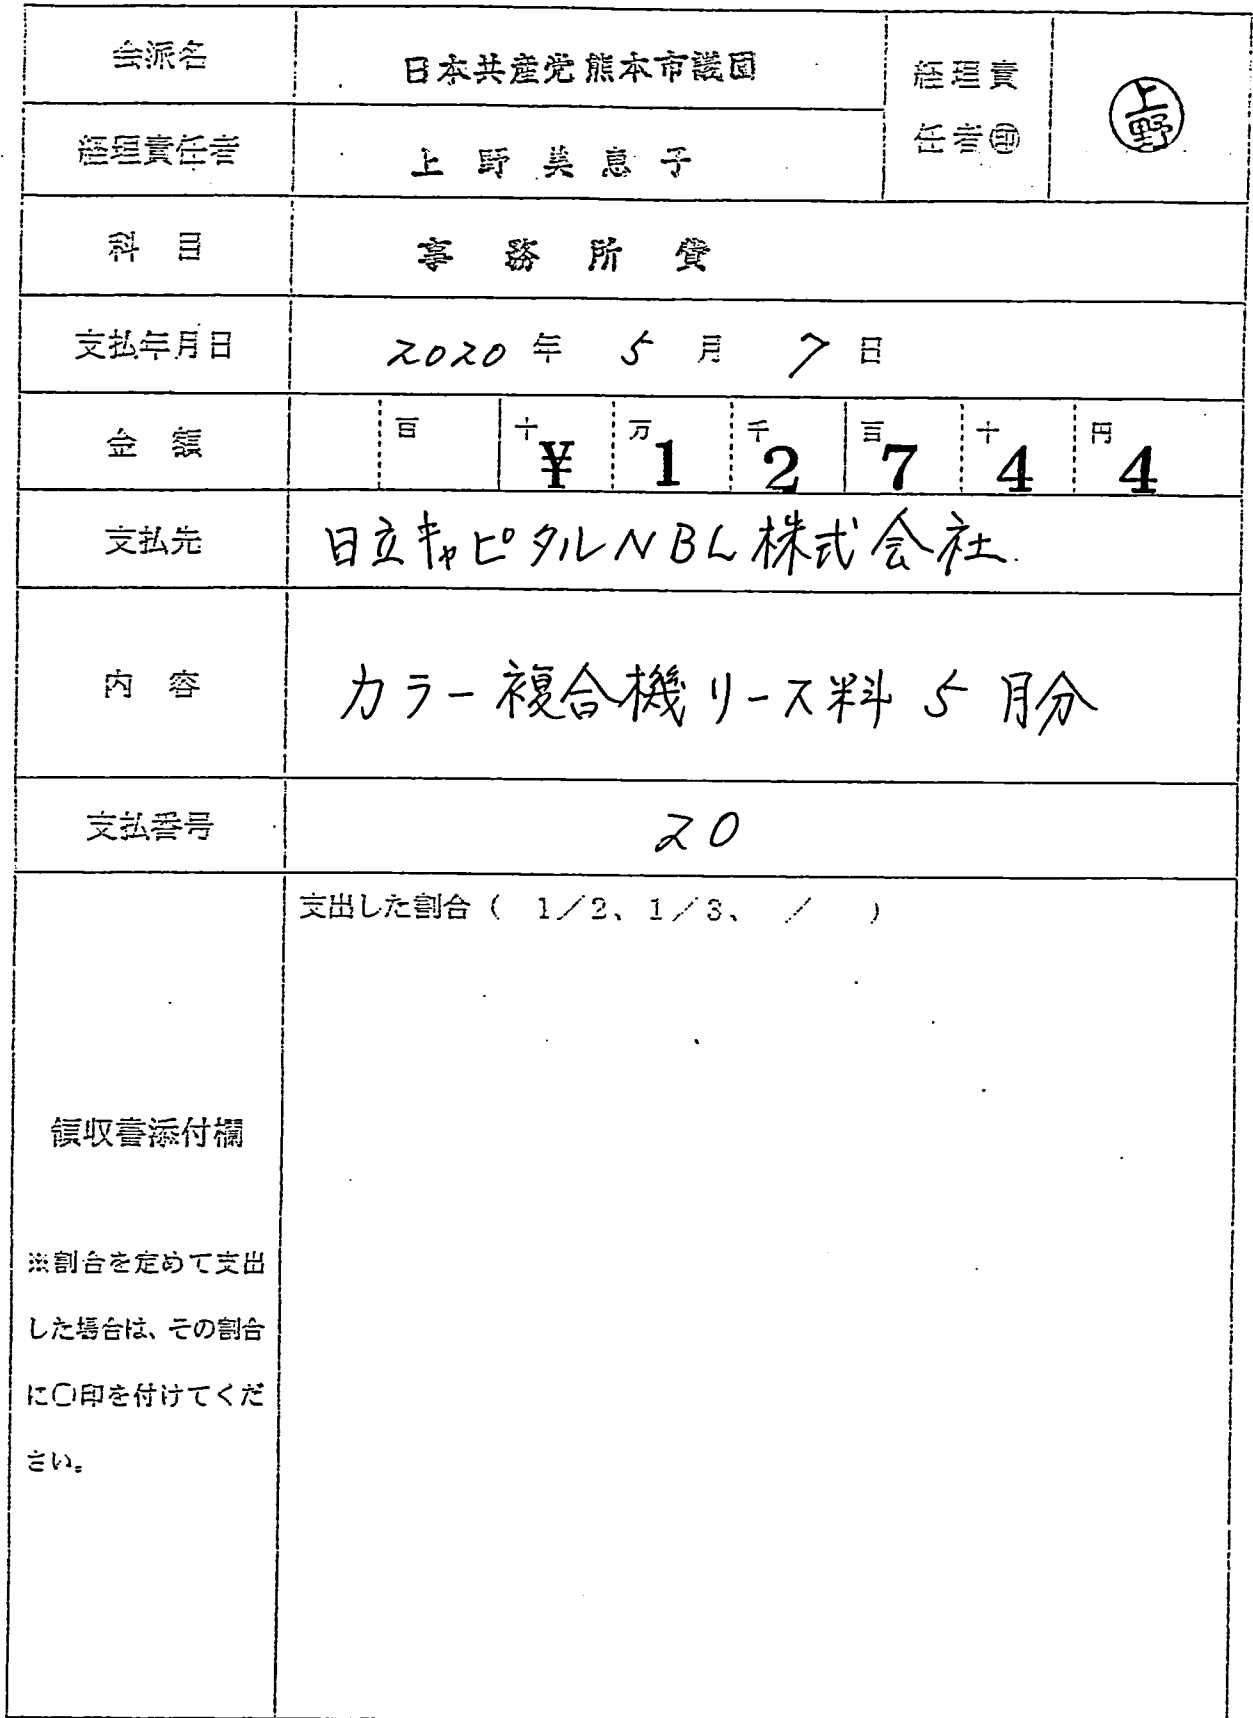 会派名 日本共産党熊本市議団 経理責任者㊞ 上野
経理責任者 上野美恵子
科目 事務所費
支払年月日 2020年 5月 7日
金額 百 十 万 千 百 十 円
¥12744
支払先 日立キャピタルNBL株式会社
内容 カラー複合機リース料 5月分
支払番号 20
支出した割合( 1/2、1/3、 / )
領収書添付欄
※割合を定めて支出
した場合は、その割合
に〇印を付けてくだ
さい。